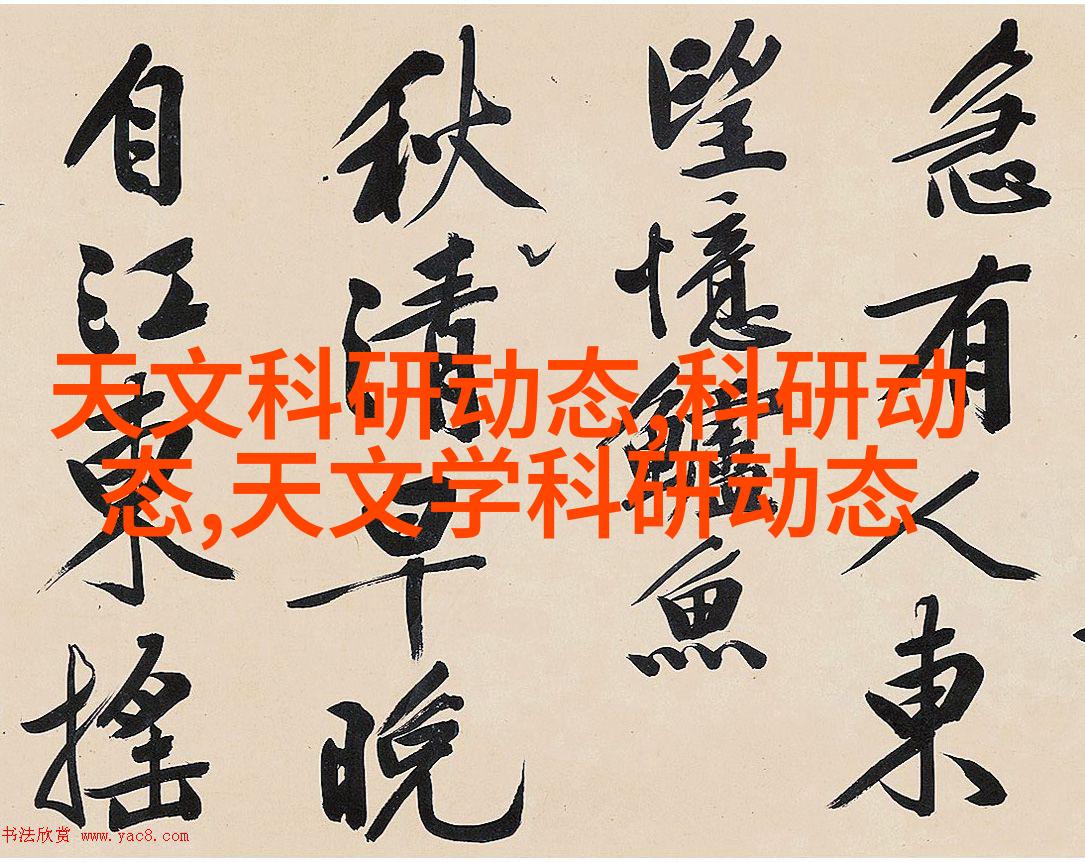 急有人東
望憶鱸魚
秋清早晚
自江東搖
天文科研动态,科研动
态,天文学科研动态
书法欣赏 www.yac8.com